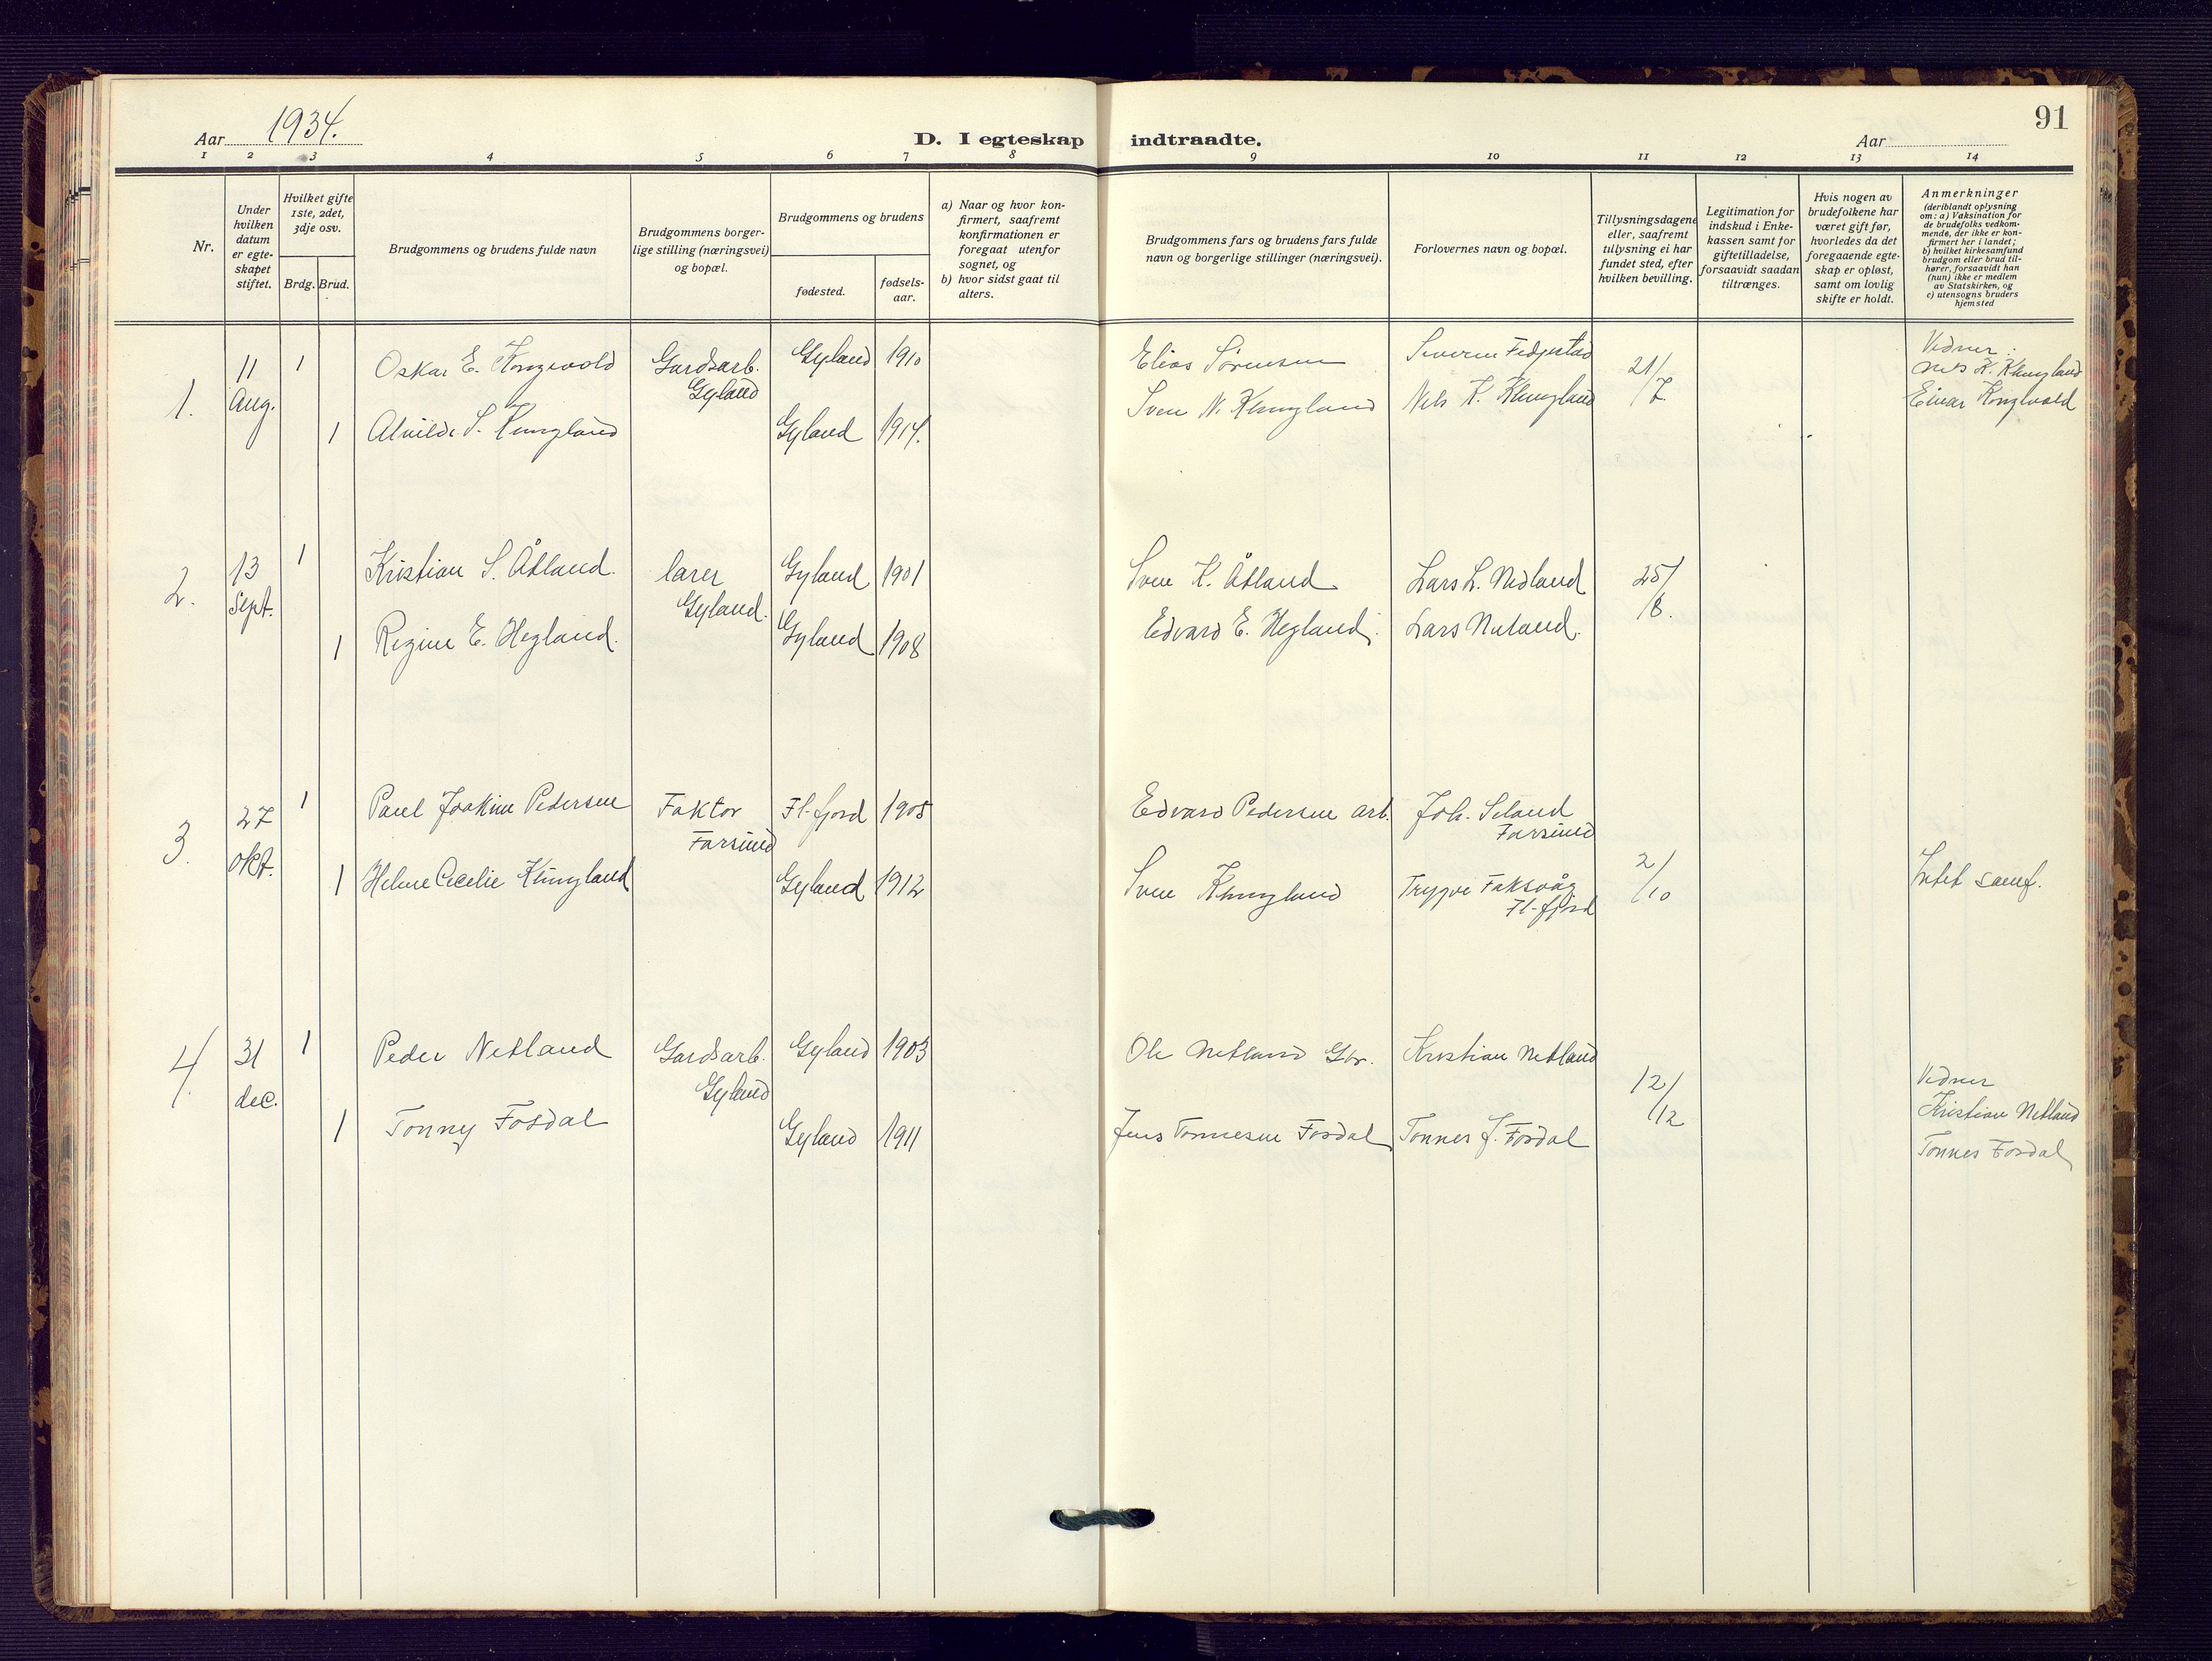 91
Aar 1934.
D. I egteskap indtraadte.
Aar
1 2 3 4 5 6 7 8 9 10 11 12 13 14
Nr.
Under hvilken datum er egte-skapet stiftet.
Hvilket gifte 1ste, 2det, 3dje osv.
Brdg. Brud.
Brudgommens og brudens fulde navn
Brudgommens borger-
lige stilling (næringsvei)
og bopæl.
Brudgommens og brudens
fødested.
fødsels-
aar.
a) Naar og hvor kon-
firmert, saafremt
konfirmationen er
foregaat utenfor
sognet, og
b) hvor sidst gaat til
alters.
Brudgommens fars og brudens fars fulde
navn og borgerlige stillinger (næringsvei).
Forlovernes navn og bopæl.
Tillysningsdagene
eller, saafremt
tillysning ei har
fundet sted, efter
hvilken bevilling.
Legitimation for
indskud i Enke-
kassen samt for
giftetilladelse,
forsaavidt saadan
tiltrænges.
Hvis nogen av
brudefolkene har
været gift før,
hvorledes da det
foregaaende egte-
skap er opløst,
samt om lovlig
skifte er holdt.
Anmerkninger
(deriblandt oplysning
om: a) Vaksination for
de brudefolks vedkom-
mende, der ikke er kon-
firmert her i landet;
b) hvilket kirkesamfund
brudgom eller brud til-
hører, forsaavidt han
(hun) ikke er medlem
av Statskirken, og
c) utensogns bruders
hjemsted
1. 11 Aug. 1 Oskar E. Kongevold Gardsarb. Gyland Gyland 1910 Elias Sørensen 21/7 Vidner: Nils K. Klungland
1 Alvilde S. Klungland Gyland 1914. Sven N. Klungland Nils K. Klungland Einar Kongevold
2. 13 Sept. 1 Kristian S. Åtland. lærer Gyland. Gyland 1901 Sven K. Åtland Lars L. Nedland 25/8.
1 Regine E. Hegland. Gyland 1908 Edvard E. Hegland. Lars Nuland.
3. 27 okt. 1 Paul Joakim Pedersen Faktor Farsund Fl-fjord 1905 Edvard Pedersen arb. Joh. Seland Farsund 2/10
1 Helene Cecelie Klungland Gyland 1912 Sven Klungland Trygve Faksvåg Fl-fjord Intet samf.
4. 31 dec. 1 Peder Netland Gardsarb. Gyland Gyland 1903 Ole Netland Gbr. Kristian Netland 12/12 Vidner Kristian Netland
1 Tonny Fosdal Gyland 1911 Jens Tønnesen Fosdal Tønnes J. Fosdal Tønnes Fosdal